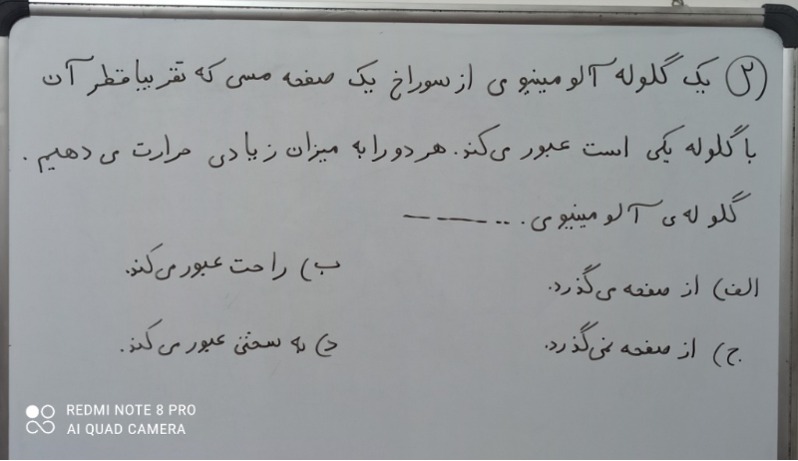 ۲) یک گلوله آلومینیومی از سوراخ یک صفحه مسی که تقریبا قطر آن
با گلوله یکی است عبور می‌کند. هر دو را به میزان زیادی حرارت می‌دهیم.
گلوله‌ی آلومینیومی ..........
الف) از صفحه می‌گذرد.
ب) راحت عبور می‌کند.
ج) از صفحه نمی‌گذرد.
د) به سختی عبور می‌کند.
REDMI NOTE 8 PRO
AI QUAD CAMERA